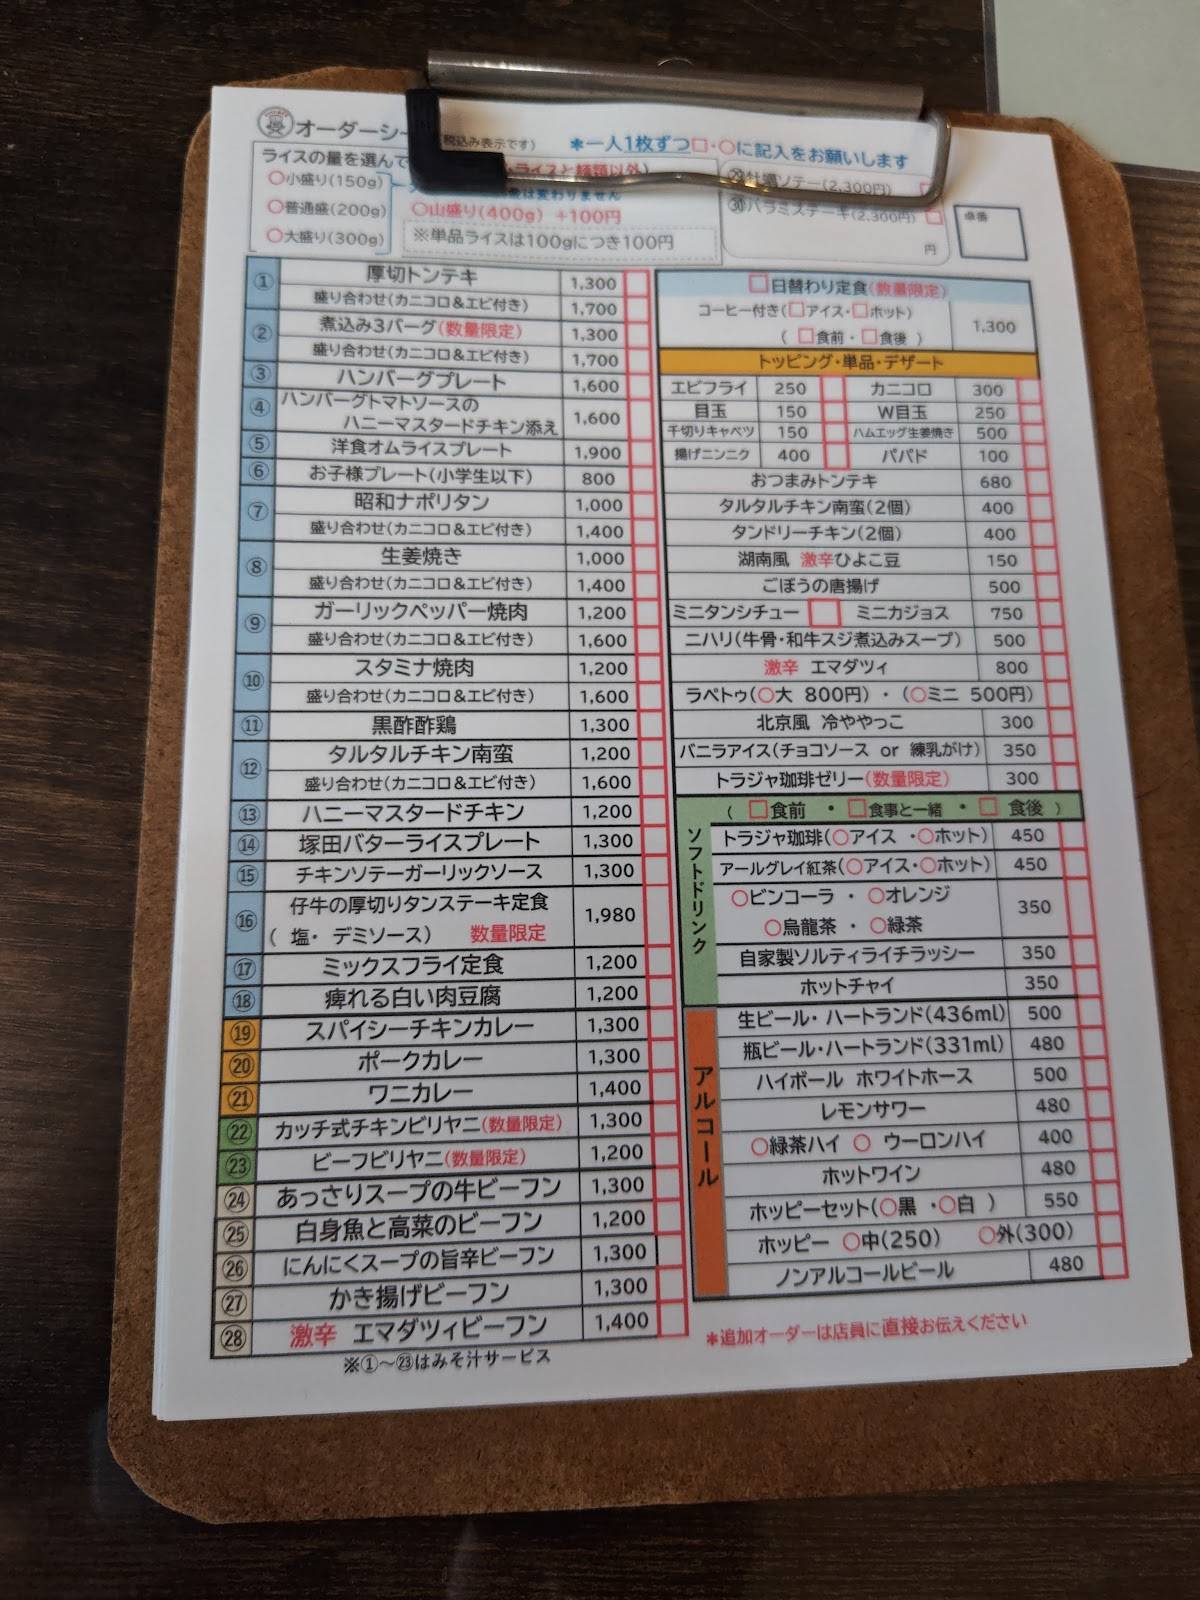 オーダーシー
税込み表示です)
*一人1枚ずつ□・○に記入をお願いします
ライスの量を選んで
ライスと麺類以外)
○小盛り(150g)
は変わりません
○普通盛(200g)
○山盛り(400g) +100円
○大盛り(300g)
※単品ライスは100gにつき100円
㉙牡蠣ソテー(2,300円)
㉚バラミステーキ(2,300円)
円
卓番
① 厚切トンテキ 1,300
盛り合わせ(カニコロ&エビ付き) 1,700
② 煮込み3バーグ(数量限定) 1,300
盛り合わせ(カニコロ&エビ付き) 1,700
③ ハンバーグプレート 1,600
④ ハンバーグトマトソースの
ハニーマスタードチキン添え 1,600
⑤ 洋食オムライスプレート 1,900
⑥ お子様プレート(小学生以下) 800
⑦ 昭和ナポリタン 1,000
盛り合わせ(カニコロ&エビ付き) 1,400
⑧ 生姜焼き 1,000
盛り合わせ(カニコロ&エビ付き) 1,400
⑨ ガーリックペッパー焼肉 1,200
盛り合わせ(カニコロ&エビ付き) 1,600
⑩ スタミナ焼肉 1,200
盛り合わせ(カニコロ&エビ付き) 1,600
⑪ 黒酢酢鶏 1,300
⑫ タルタルチキン南蛮 1,200
盛り合わせ(カニコロ&エビ付き) 1,600
⑬ ハニーマスタードチキン 1,200
⑭ 塚田バターライスプレート 1,300
⑮ チキンソテーガーリックソース 1,300
⑯ 仔牛の厚切りタンステーキ定食
( 塩・ デミソース) 数量限定 1,980
⑰ ミックスフライ定食 1,200
⑱ 痺れる白い肉豆腐 1,200
⑲ スパイシーチキンカレー 1,300
⑳ ポークカレー 1,300
㉑ ワニカレー 1,400
㉒ カッチ式チキンビリヤニ(数量限定) 1,300
㉓ ビーフビリヤニ(数量限定) 1,200
㉔ あっさりスープの牛ビーフン 1,300
㉕ 白身魚と高菜のビーフン 1,200
㉖ にんにくスープの旨辛ビーフン 1,300
㉗ かき揚げビーフン 1,300
㉘ 激辛 エマダツィビーフン 1,400
※①〜㉓はみそ汁サービス
□日替わり定食(数量限定)
コーヒー付き(□アイス・□ホット)
( □食前・□食後 ) 1,300
トッピング・単品・デザート
エビフライ 250 カニコロ 300
目玉 150 W目玉 250
千切りキャベツ 150 ハムエッグ生姜焼き 500
揚げニンニク 400 パパド 100
おつまみトンテキ 680
タルタルチキン南蛮(2個) 400
タンドリーチキン(2個) 400
湖南風 激辛ひよこ豆 150
ごぼうの唐揚げ 500
ミニタンシチュー □ ミニカジョス 750
ニハリ(牛骨・和牛スジ煮込みスープ) 500
激辛 エマダツィ 800
ラペトゥ(○大 800円)・(○ミニ 500円)
北京風 冷ややっこ 300
バニラアイス(チョコソース or 練乳がけ) 350
トラジャ珈琲ゼリー(数量限定) 300
( □食前 ・ □食事と一緒 ・ □ 食後 )
ソフトドリンク
トラジャ珈琲(○アイス ・○ホット) 450
アールグレイ紅茶(○アイス・○ホット) 450
○ビンコーラ ・ ○オレンジ
○烏龍茶 ・ ○緑茶 350
自家製ソルティライチラッシー 350
ホットチャイ 350
アルコール
生ビール・ハートランド(436ml) 500
瓶ビール・ハートランド(331ml) 480
ハイボール ホワイトホース 500
レモンサワー 480
○緑茶ハイ ○ ウーロンハイ 400
ホットワイン 480
ホッピーセット(○黒 ・○白 ) 550
ホッピー ○中(250) ○外(300)
ノンアルコールビール 480
*追加オーダーは店員に直接お伝えください